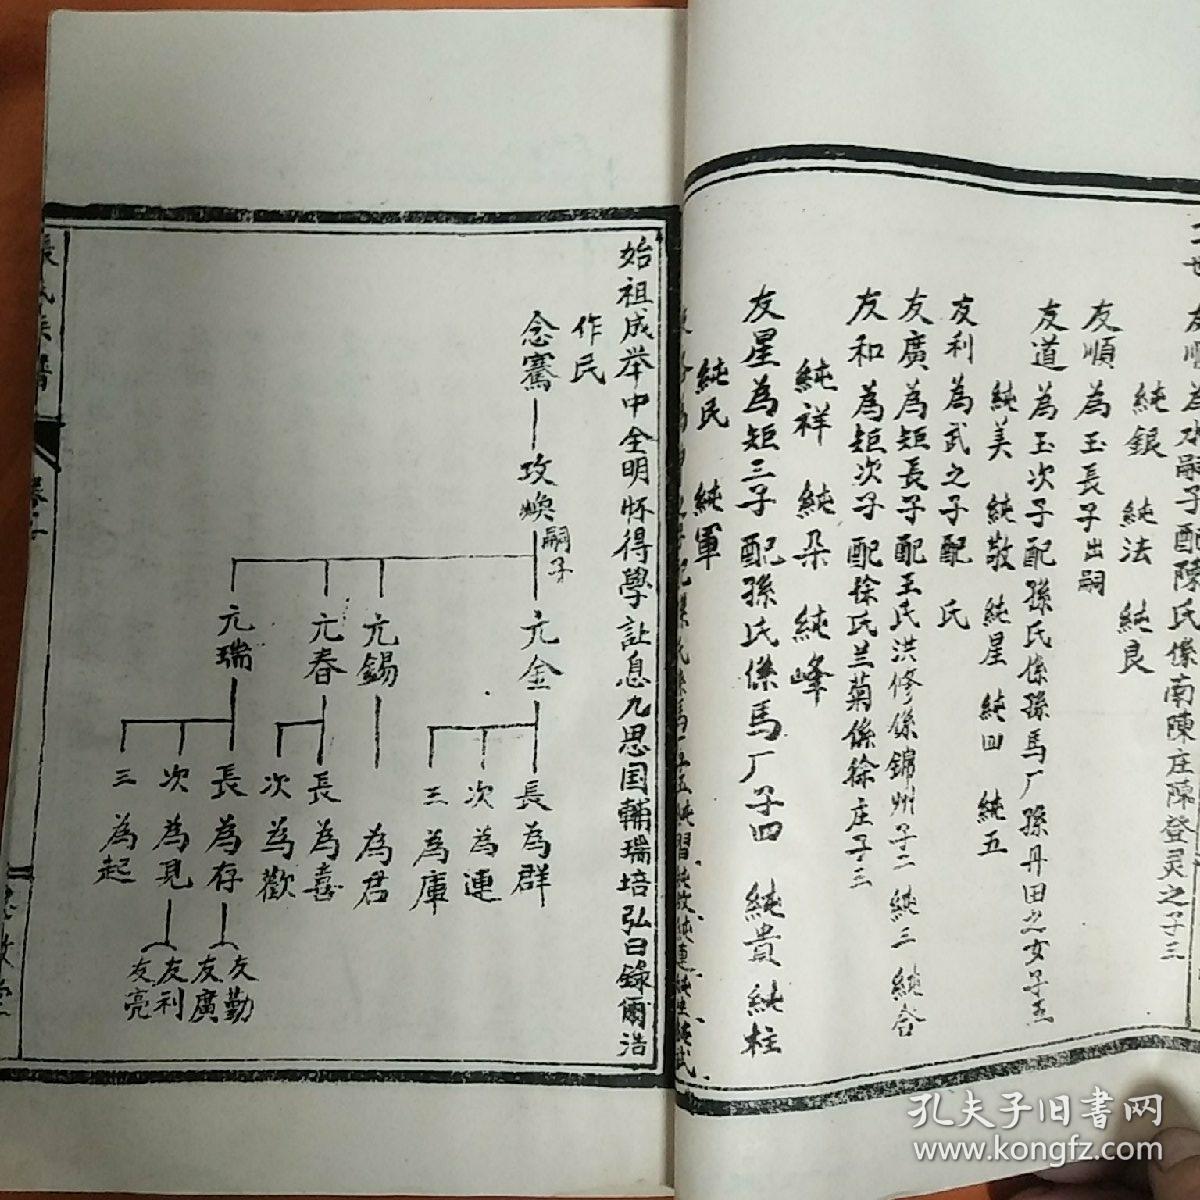 友順為水嗣子配陳氏係南陳庄陳登灵之子三
純銀 純法 純良
友順為玉長子出嗣
友道為玉次子配孫氏係孫馬厂孫丹田之女子五
純美 純敬 純星 純四 純五
友利為武之子配 氏
友廣為矩長子配王氏洪修係錦州子二 純三 純合
友和為矩次子配徐氏兰菊係徐庄子三
純祥 純朵 純峰
友星為矩三子配孫氏係馬厂子四 純貴 純柱
純民 純軍
始祖成举中全明怀得學訨息九思国輔瑞培弘日錄爾浩
作民
念騫
攻焕
嗣子
元金
元錫
元春
元瑞
長為群
次為連
三為庫
為君
長為喜
次為歡
長為存
次為見
三為起
友勤
友廣
友利
友亮
張氏族譜
孔夫子旧书网
www.kongfz.com